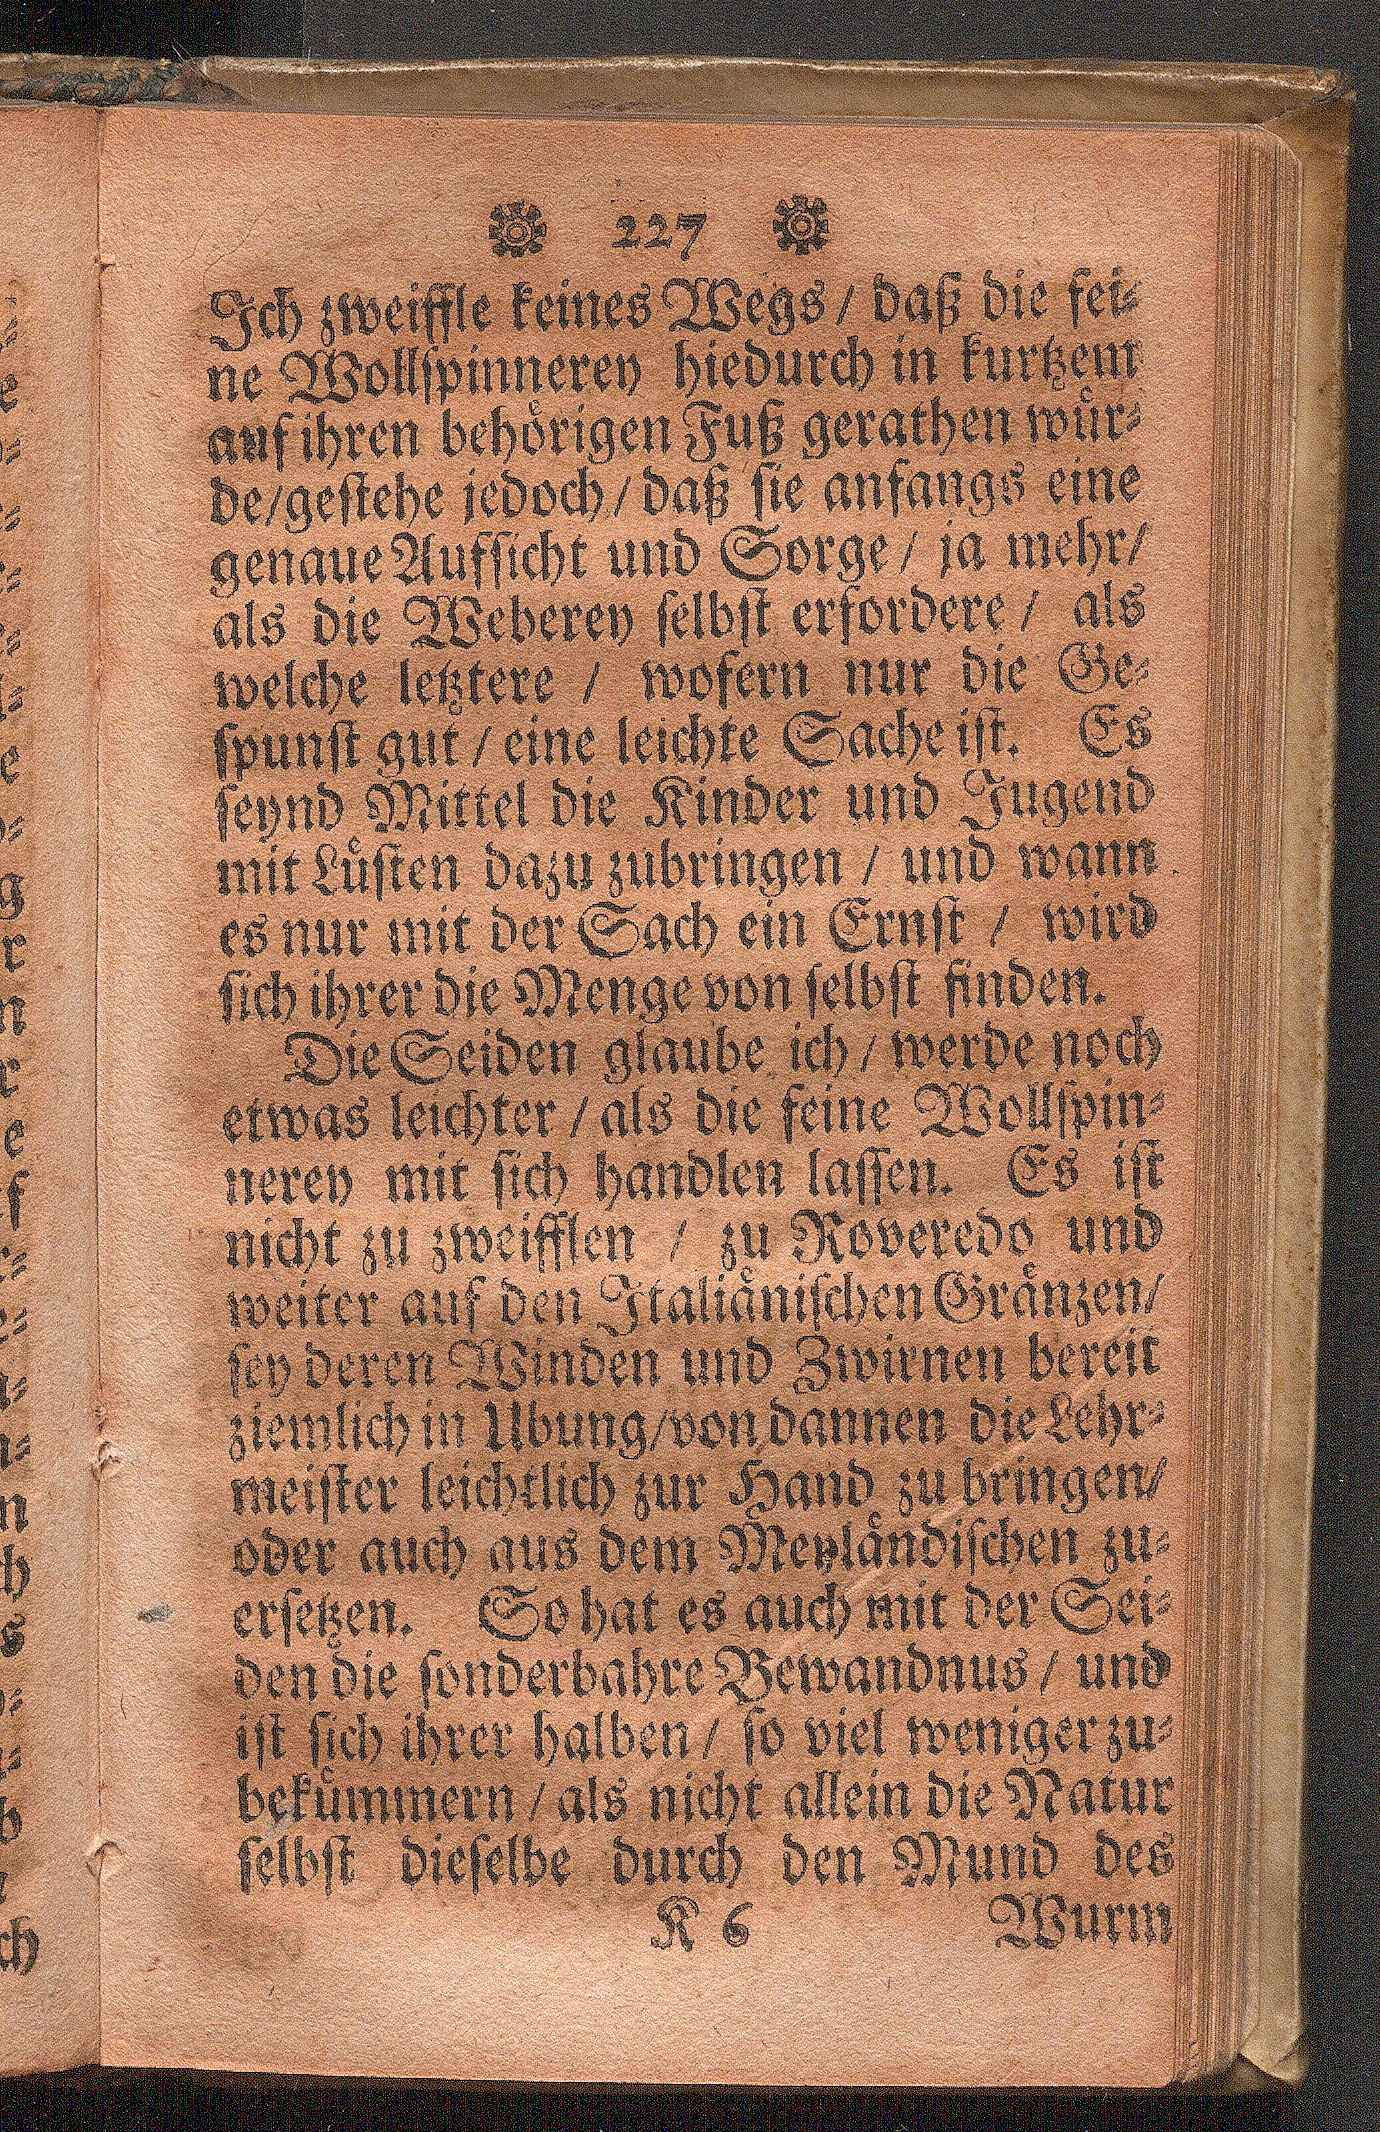 227
Ich zweiffle keines Wegs / daß die fei-
ne Wollspinnerey hiedurch in kurtzem
auf ihren behörigen Fuß gerathen wür-
de/gestehe jedoch / daß sie anfangs eine
genaue Aufsicht und Sorge / ja mehr/
als die Weberey selbst erfordere / als
welche letztere / wofern nur die Ge-
spunst gut / eine leichte Sache ist. Es
seynd Mittel die Kinder und Jugend
mit Lüsten dazu zubringen / und wann
es nur mit der Sach ein Ernst / wird
sich ihrer die Menge von selbst finden.
Die Seiden glaube ich / werde noch
etwas leichter / als die feine Wollspin-
nerey mit sich handlen lassen. Es ist
nicht zu zweifflen / zu Roveredo und
weiter auf den Italiänischen Gränzen/
sey deren Winden und Zwirnen bereit
ziemlich in Ubung/von dannen die Lehr-
meister leichtlich zur Hand zu bringen/
oder auch aus dem Meyländischen zu-
ersetzen. So hat es auch mit der Sei-
den die sonderbahre Bewandnus / und
ist sich ihrer halben / so viel weniger zu-
bekümmern / als nicht allein die Natur
selbst dieselbe durch den Mund des
K 6 Wurm